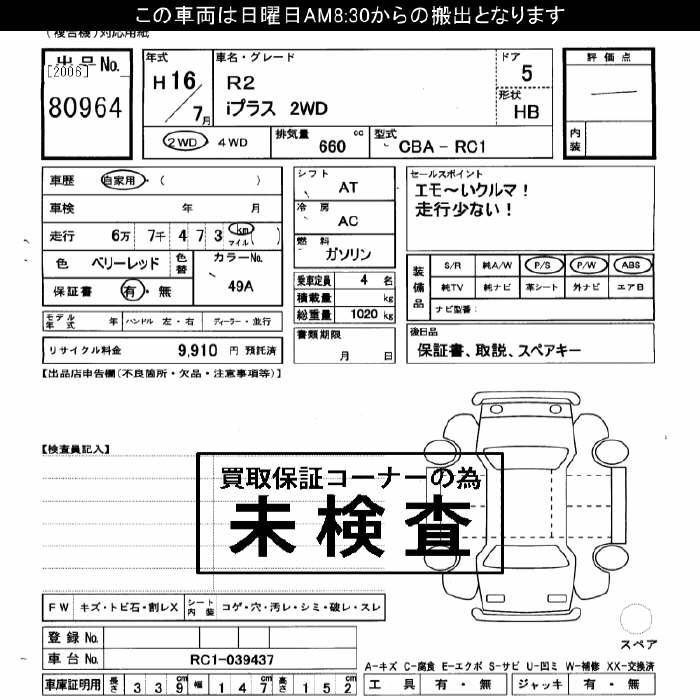 この車両は日曜日AM8:30からの搬出となります
(複合機)対応用紙
出品No. [2006] 80964
年式 H16/7月
車名・グレード R2 iプラス 2WD
ドア 5
形状 HB
評価点 —
内装
2WD・4WD 排気量 660 cc 型式 CBA-RC1
車歴 自家用・( )
車検 年 月
走行 6万 7千 4 7 3 km マイル ( )
色 ベリーレッド 色替 カラーNo. 49A
保証書 有・無
モデル年式 年 ハンドル 左・右 ディーラー・並行
リサイクル料金 9,910 円 預託済
シフト AT
冷房 AC
燃料 ガソリン
乗車定員 4 名
積載量 kg
総重量 1020 kg
書類期限 月 日
セールスポイント
エモ〜いクルマ!
走行少ない!
装備品 S/R 純A/W P/S P/W ABS
純TV 純ナビ 革シート 外ナビ エアB
ナビ型番:
後日品
保証書、取説、スペアキー
【出品店申告欄(不良箇所・欠品・注意事項等)】
【検査員記入】
買取保証コーナーの為
未検査
FW キズ・トビ石・割レX シート内装 コゲ・穴・汚レ・シミ・破レ・スレ
登録No.
車台No. RC1-039437
車庫証明用 長さ 3 3 9 cm 幅 1 4 7 cm 高さ 1 5 2 cm
スペア
A-キズ C-腐食 E-エクボ S-サビ U-凹ミ W-補修 XX-交換済
工具 有・無 ジャッキ 有・無